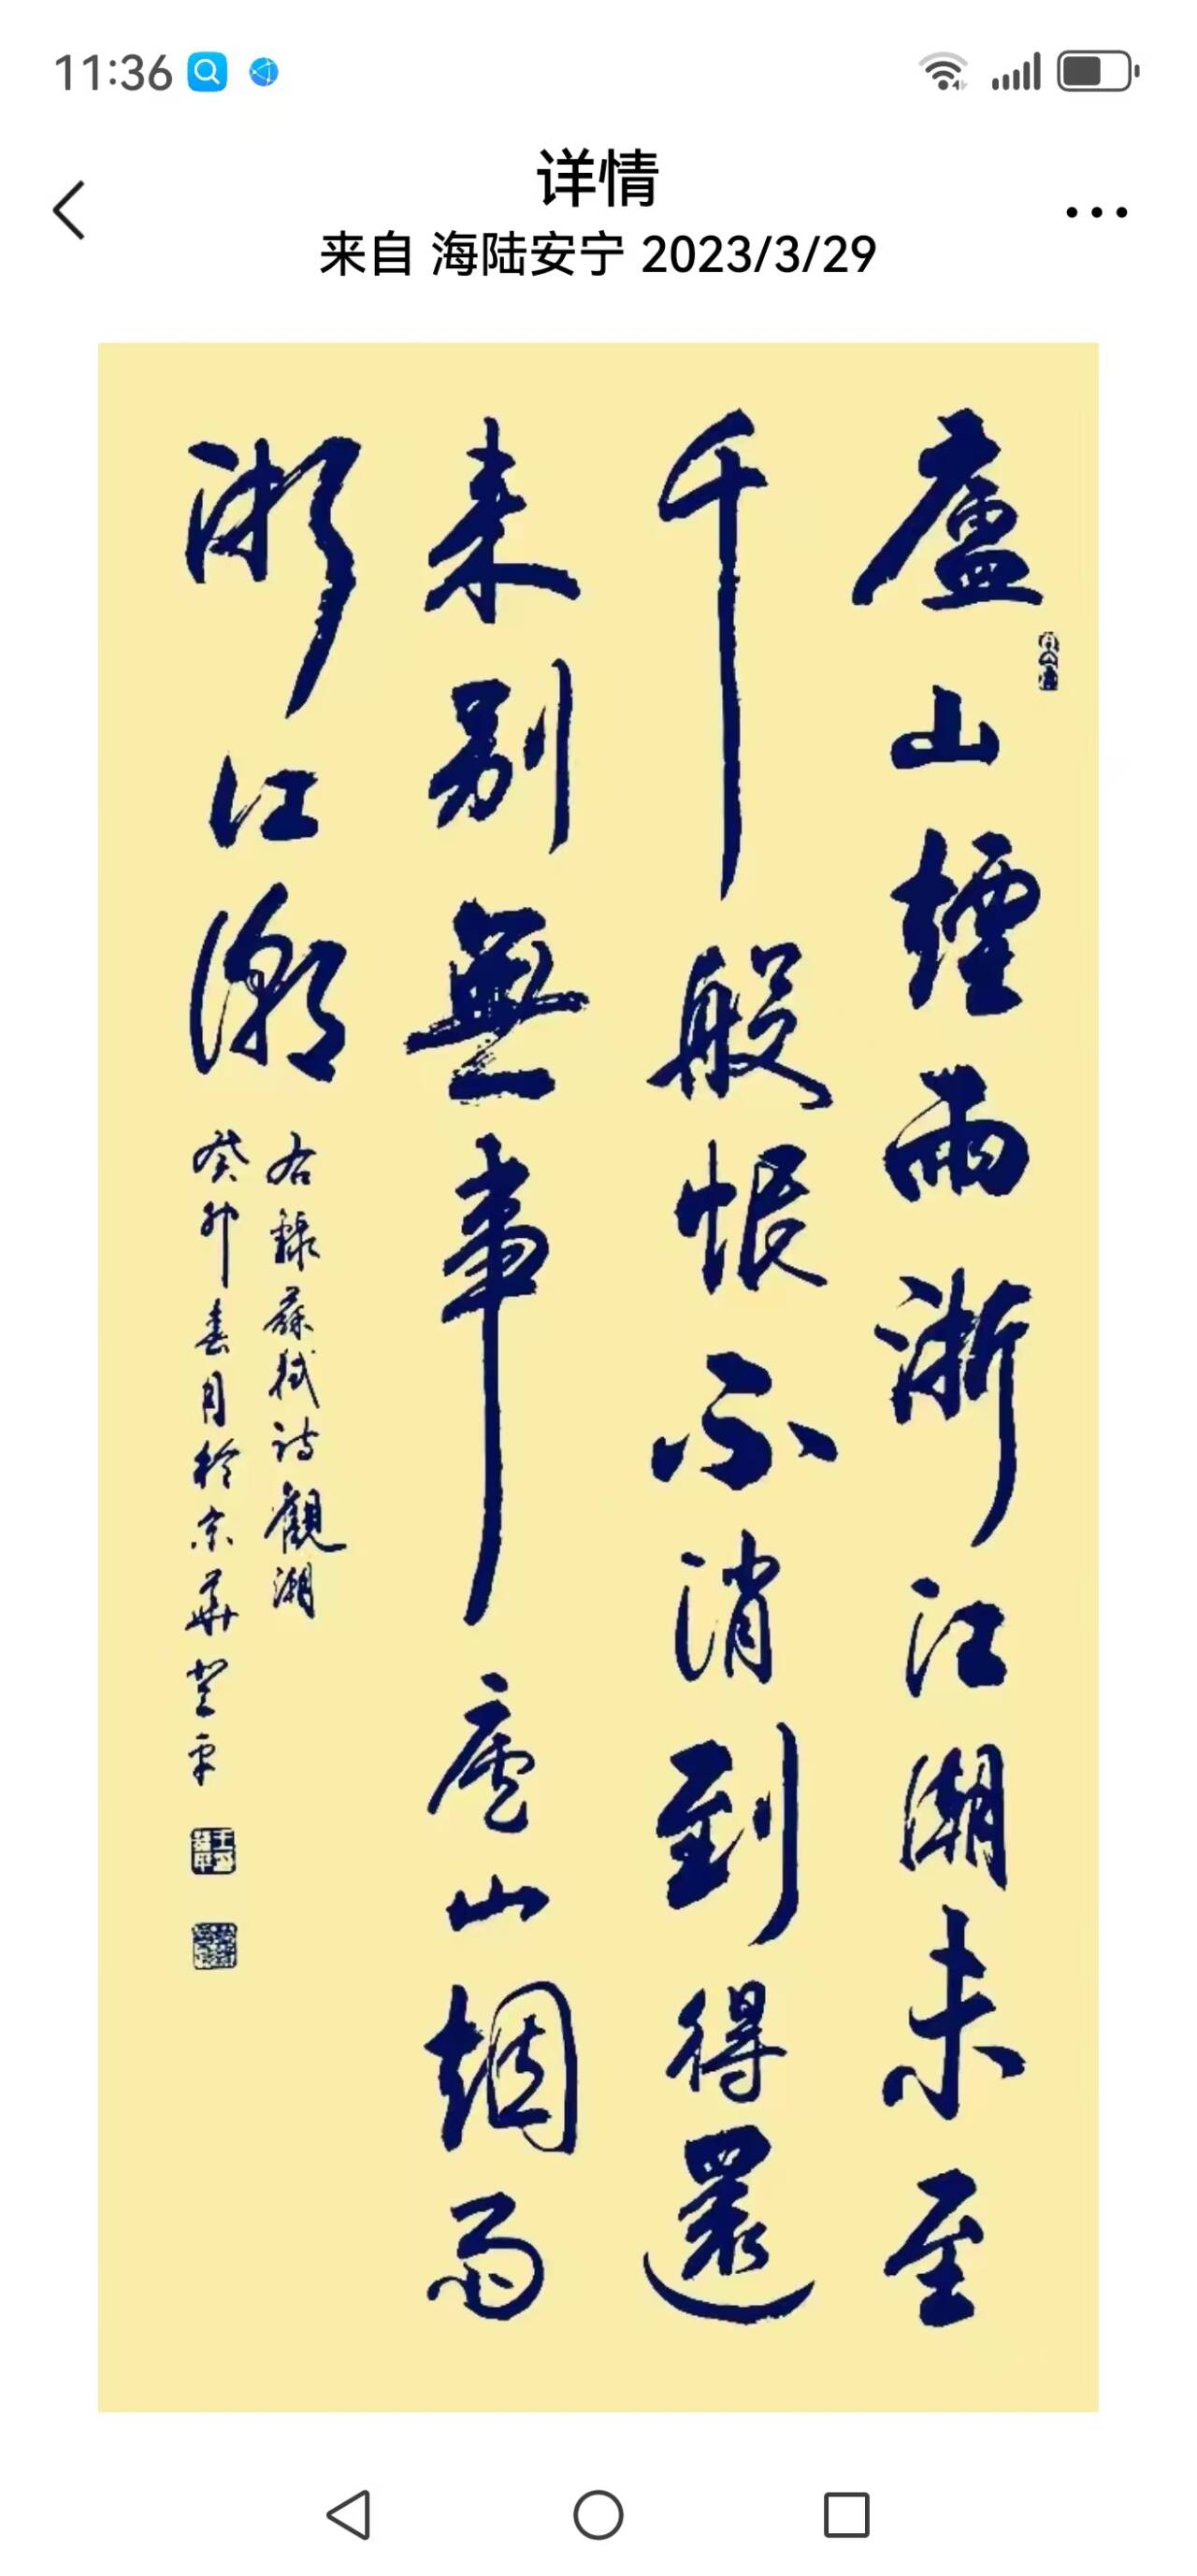 11:36
详情
来自 海陆安宁 2023/3/29
廬山煙雨浙江潮未至
千般恨不消到得還
来别無事廬山烟雨
浙江潮
右録蘇軾诗觀潮
癸卯春月於京華